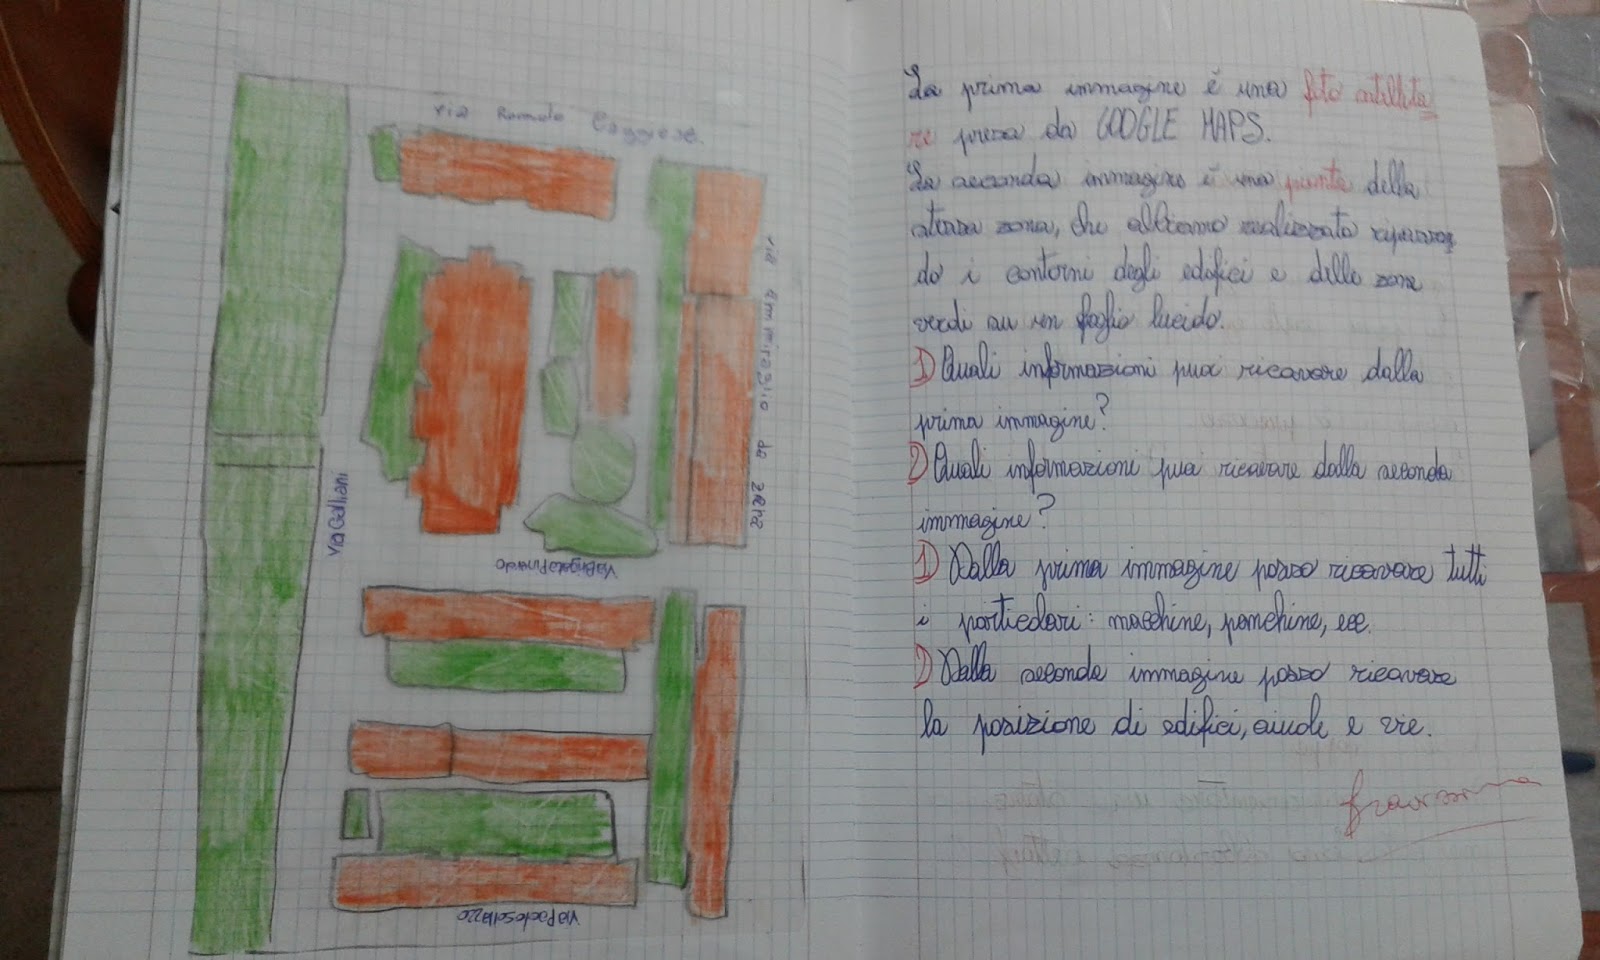 Via Romolo Caggese.
via ammiraglio da zara
Via Galliani
Via Brigata Pinerolo
Via Paolo Sollazzo
La prima immagine è una foto satellita
re presa da GOOGLE MAPS.
La seconda immagine è una pianta della
stessa zona, che abbiamo realizzato ripassan
do i contorni degli edifici e delle zone
verdi su un foglio lucido.
1) Quali informazioni puoi ricavare dalla
prima immagine?
2) Quali informazioni puoi ricavare dalla seconda
immagine?
1) Dalla prima immagine posso ricavare tutti
i particolari: macchine, panchine, ecc.
2) Dalla seconda immagine posso ricavare
la posizione di edifici, aiuole e vie.